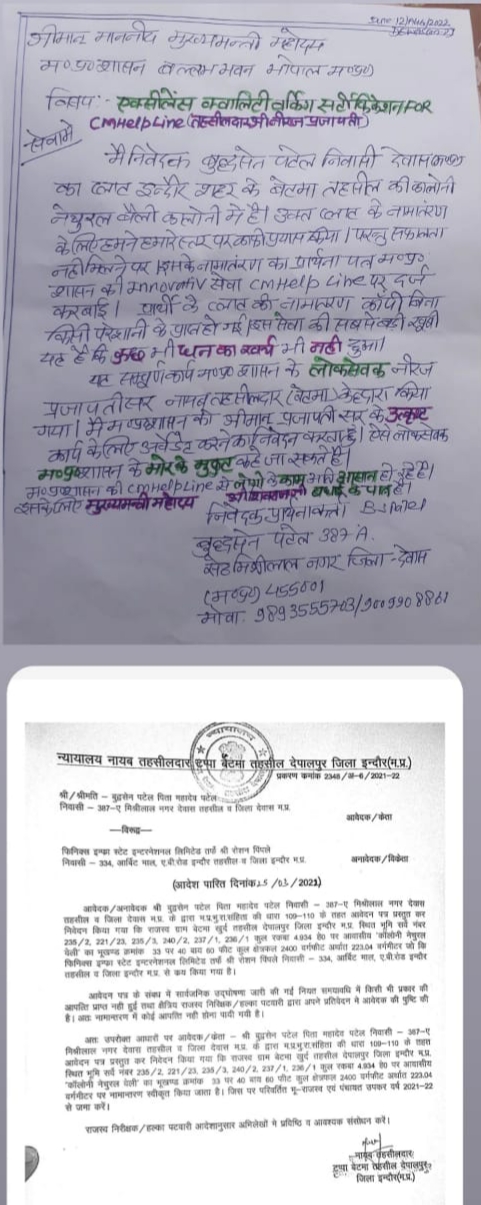 श्रीमान माननीय मुख्यमन्त्री महोदय
म०प्र०शासन वल्लभ भवन भोपाल म०प्र०
विषय:- एक्सीलेंस क्वालिटी वर्किंग सर्टीफिकेशन FOR
CM Help Line (तहसीलदार श्री नीरज प्रजापती)
सेवामे
मै निवेदक बुद्धसेन पटेल निवासी देवास म०प्र०
का प्लाट इन्दौर शहर के बेटमा तहसील की कालोनी
नेचुरल वैली कालोनी मे है। उक्त प्लाट के नामातंरण
के लिए हमने हमारे स्तर पर काफी प्रयास किया। परन्तु सफलता
नही मिलने पर। इसके नामातंरण का प्रार्थना पत्र म०प्र०
शासन की innovativ सेवा CM Help Line पर दर्ज
करवाई। प्रार्थी के प्लाट की नामातरण कॉपी बिना
किसी परेशानी के प्राप्त हो गई। इस सेवा की सबसे बडी खुबी
यह है कि कुछ भी धन का खर्च भी नही हुआ।
यह सम्पुर्ण कार्य म०प्र० शासन के लोकसेवक नीरज
प्रजापती सर नायब तहसीलदार (बेटमा) के द्वारा किया
गया। मै म०प्र०शासन को श्रीमान प्रजापती सर के उत्कृष्ट
कार्य के लिए अवॅार्ड करने का निवेदन करता हूँ। ऐसे लोकसेवक
म०प्र०शासन के मोर के मुकुट कहे जा सकते है।
म०प्र०शासन की CM Help Line से लोगो के काम आसान हो रहे है।
इसके लिए मुख्यमन्त्री महोदय बधाई के पात्र है।
निवेदक प्रार्थनाकर्ता
बुद्धसेन पटेल 387 A.
सेठ मिश्रीलाल नगर जिला - देवास
(म०प्र०) 455001
मोबा: 9893555703/9009908861
न्यायालय नायब तहसीलदार टप्पा बेटमा तहसील देपालपुर जिला इन्दौर(म.प्र.)
प्रकरण कमांक 2348/अ-6/2021-22
श्री/श्रीमति - बुद्धसेन पटेल पिता महादेव पटेल
निवासी - 387-ए मिश्रीलाल नगर देवास तहसील व जिला देवास म.प्र.
आवेदक/केता
—विरूद्ध—
फिनिक्स इन्फ्रा स्टेट इन्टरनेशनल लिमिटेड तर्फे श्री रोशन पिंपले
निवासी - 334, आर्बिट माल, ए.बी.रोड इन्दौर तहसील व जिला इन्दौर म.प्र.
अनावेदक/विकेता
(आदेश पारित दिनांक 25/03/2021)
आवेदक/अनावेदक श्री बुद्धसेन पटेल पिता महादेव पटेल निवासी - 387-ए मिश्रीलाल नगर देवास
तहसील व जिला देवास म.प्र. के द्वारा म.प्र.भू.रा.संहिता की धारा 109-110 के तहत आवेदन पत्र प्रस्तुत कर
निवेदन किया गया कि राजस्व ग्राम बेटमा खुर्द तहसील देपालपुर जिला इन्दौर म.प्र. स्थित भूमि सर्वे नंबर
235/2, 221/23, 235/3, 240/2, 237/1, 236/1 कुल रकबा 4.934 हे0 पर आवासीय 'कॉलोनी नेचुरल
वेली' का भूखण्ड कमांक 33 पर 40 बाय 60 फीट कुल क्षेत्रफल 2400 वर्गफीट अर्थात 223.04 वर्गमीटर जो कि
फिनिक्स इन्फ्रा स्टेट इन्टरनेशनल लिमिटेड तर्फे श्री रोशन पिंपले निवासी - 334, आर्बिट माल, ए.बी.रोड इन्दौर
तहसील व जिला इन्दौर म.प्र. से कय किया गया है।
आवेदन पत्र के संबंध में सार्वजनिक उद्घोषणा जारी की गई नियत समयावधि में किसी भी प्रकार की
आपत्ति प्राप्त नही हुई तथा क्षेत्रिय राजस्व निरिक्षक/हल्का पटवारी द्वारा अपने प्रतिवेदन मे आवेदक की पुष्टि की
है। अतः नामान्तरण में कोई आपत्ति नही होना पायी गयी है।
अतः उपरोक्त आधारों पर आवेदक/केता - श्री बुद्धसेन पटेल पिता महादेव पटेल निवासी - 387-ए
मिश्रीलाल नगर देवास तहसील व जिला देवास म.प्र. के द्वारा म.प्र.भू.रा.संहिता की धारा 109-110 के तहत
आवेदन पत्र प्रस्तुत कर निवेदन किया गया कि राजस्व ग्राम बेटमा खुर्द तहसील देपालपुर जिला इन्दौर म.प्र.
स्थित भूमि सर्वे नंबर 235/2, 221/23, 235/3, 240/2, 237/1, 236/1 कुल रकबा 4.934 हे0 पर आवासीय
'कॉलोनी नेचुरल वेली' का भूखण्ड कमांक 33 पर 40 बाय 60 फीट कुल क्षेत्रफल 2400 वर्गफीट अर्थात 223.04
वर्गमीटर पर नामान्तरण स्वीकृत किया जाता है। जिस पर परिवर्तित भू-राजस्व एवं पंचायत उपकर वर्ष 2021-22
से जमा करें।
राजस्व निरीक्षक/हल्का पटवारी आदेशानुसार अभिलेखों मे प्रविष्ठि व आवश्यक संशोधन करें।
नायब तहसीलदार
टप्पा बेटमा तहसील देपालपुर
जिला इन्दौर(म.प्र.)